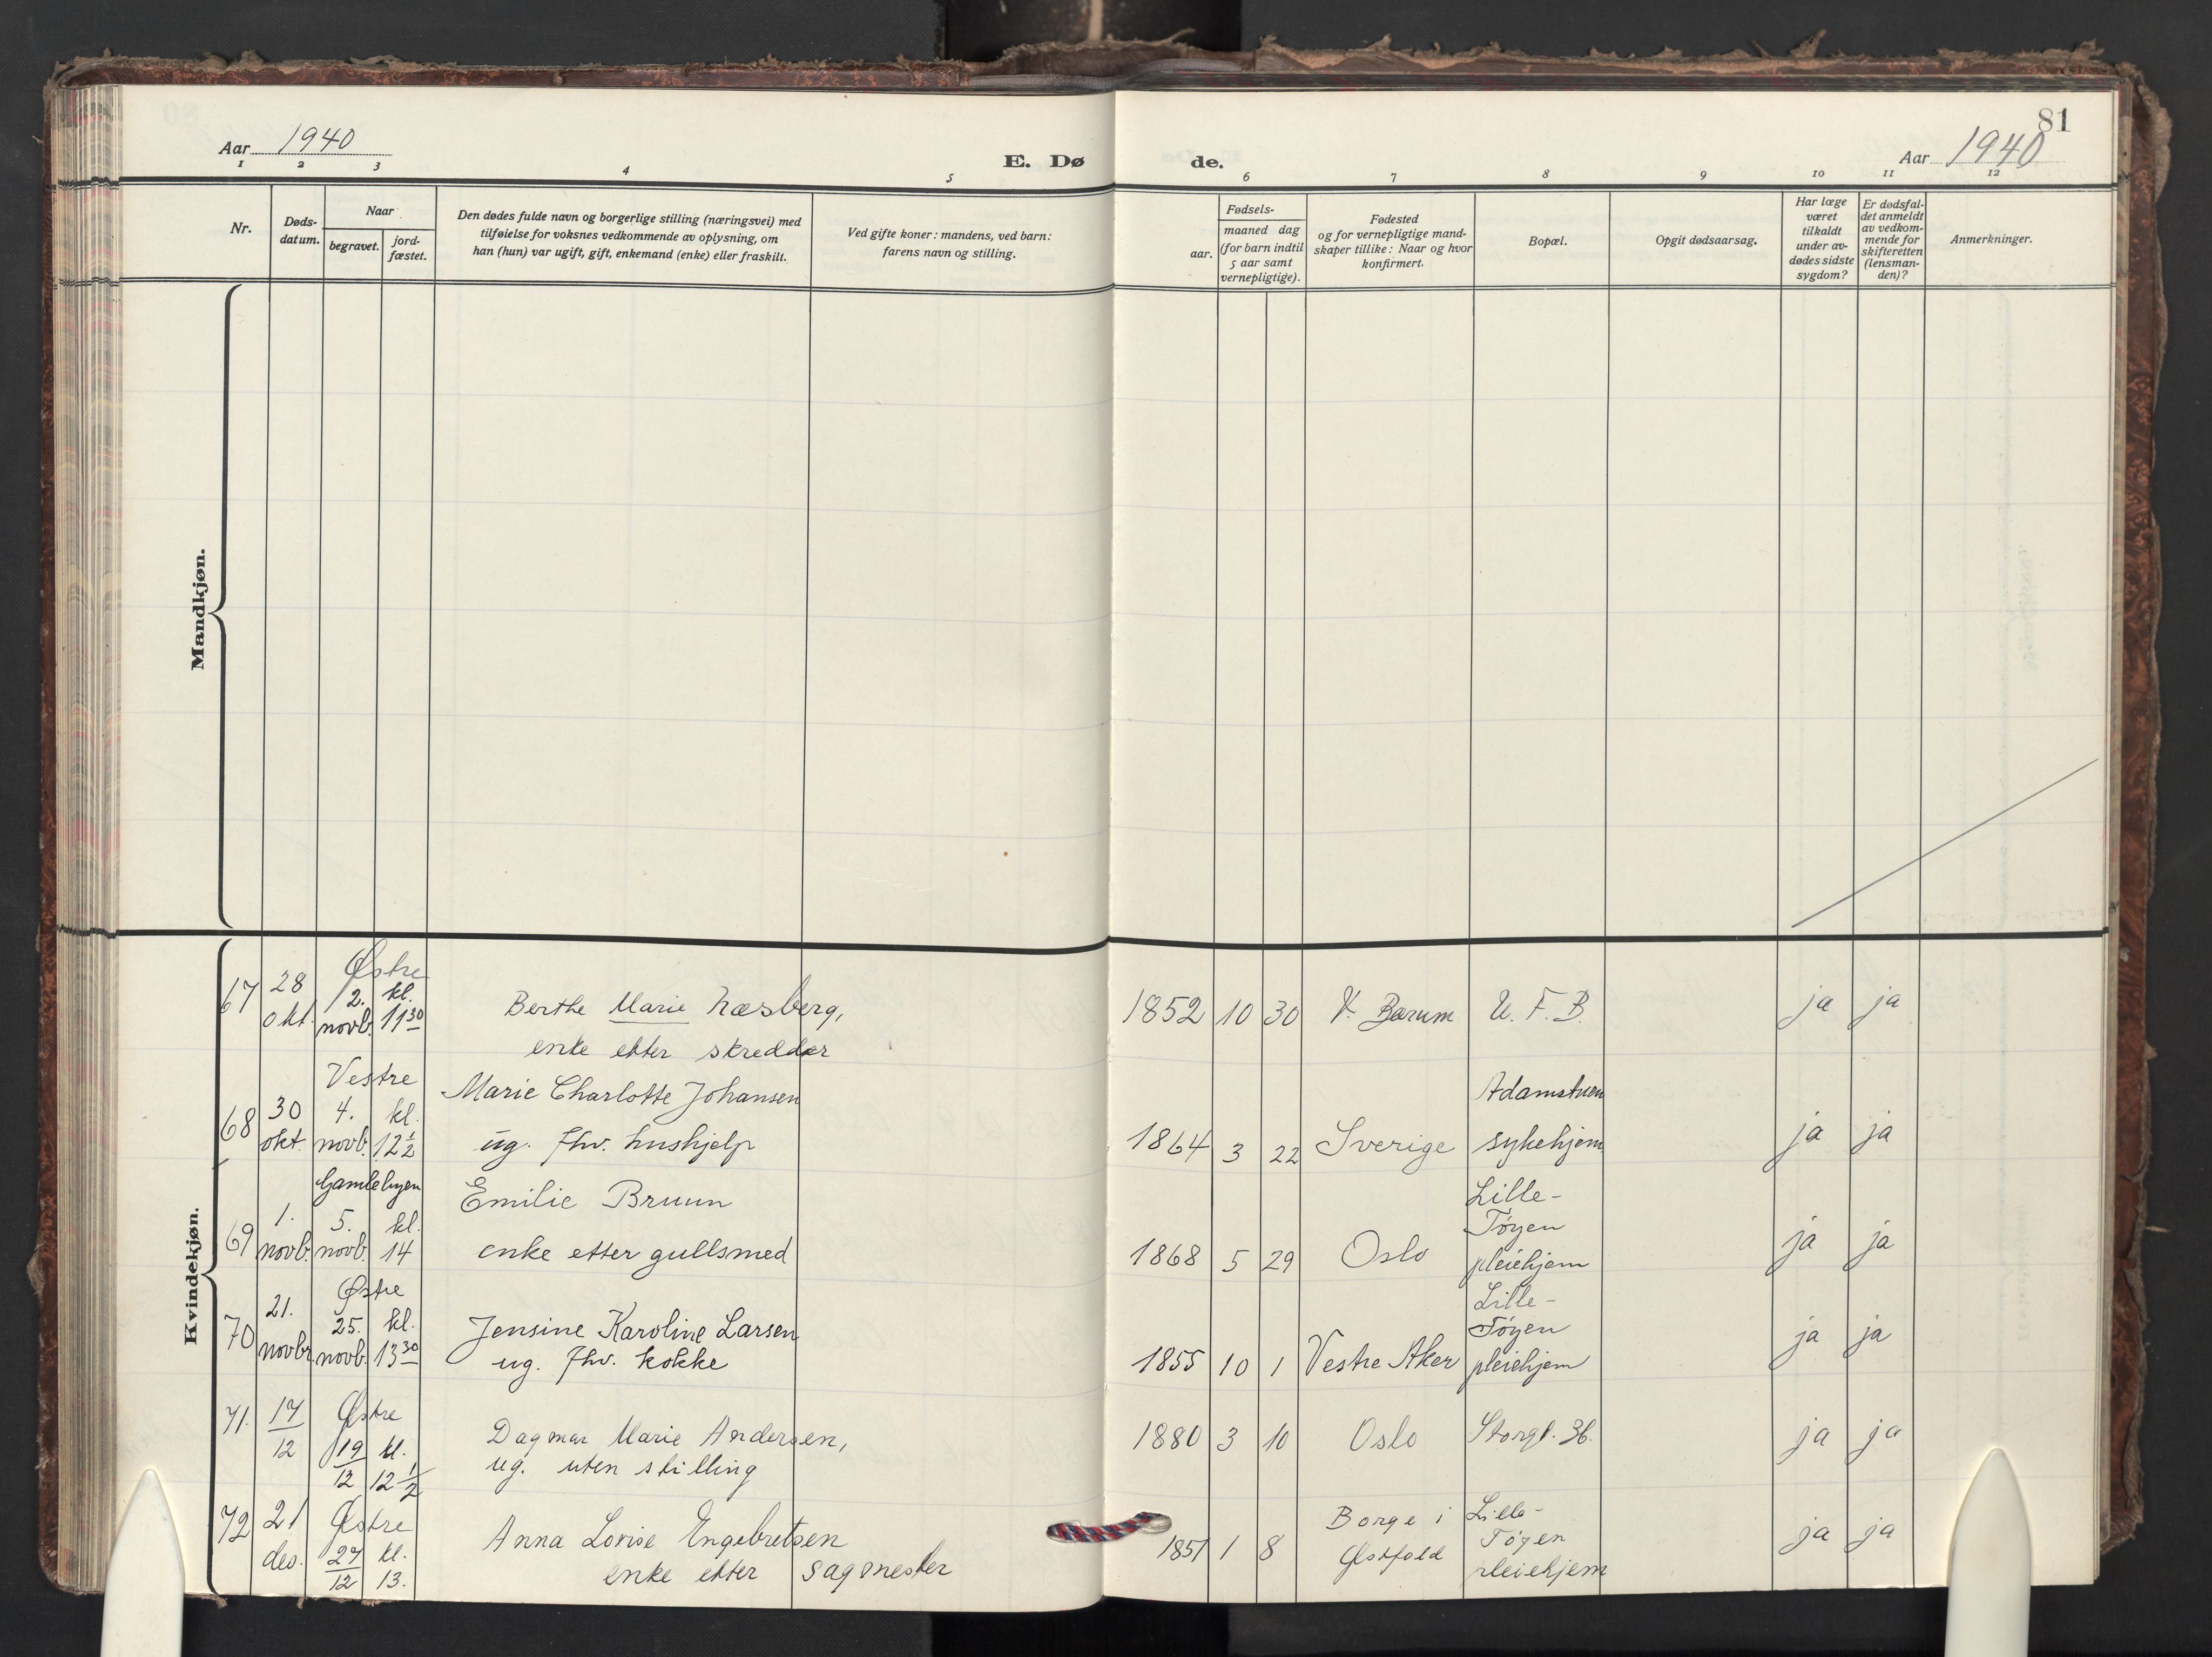 81
Aar 1940
E. Dø de.
Aar 1940
1 2 3 4 5 6 7 8 9 10 11 12
Nr.
Døds-
datum.
Naar
begravet.
jord-
fæstet.
Den dødes fulde navn og borgerlige stilling (næringsvei) med
tilføielse for voksnes vedkommende av oplysning, om
han (hun) var ugift, gift, enkemand (enke) eller fraskilt.
Ved gifte koner: mandens, ved barn:
farens navn og stilling.
Fødsels-
aar.
maaned dag
(for barn indtil
5 aar samt
vernepligtige).
Fødested
og for vernepligtige mand-
skaper tillike: Naar og hvor
konfirmert.
Bopæl.
Opgit dødsaarsag.
Har læge
været
tilkaldt
under av-
dødes sidste
sygdom?
Er dødsfal-
det anmeldt
av vedkom-
mende for
skifteretten
(lensman-
den)?
Anmerkninger.
Mandkjøn.
Kvindekjøn.
Østre
67 28 2. kl.
okt. novb. 11 30
Berthe Marie Næsberg,
enke etter skredder
1852 10 30 V. Bærum U. F. B. ja ja
Vestre
68 30 4. kl.
okt. novb. 12 1/2
Marie Charlotte Johansen
ug. fhv. hushjelp
1864 3 22 Sverige
Adamstuen
sykehjem
ja ja
Gamlebyen
69 1. 5. kl.
novb. novb. 14
Emilie Bruun
enke etter gullsmed
1868 5 29 Oslo
Lille-
Tøyen
pleiehjem
ja ja
Østre
70 21. 25. kl.
novbr. novb. 13 30
Jensine Karoline Larsen
ug. fhv. kokke
1855 10 1 Vestre Aker
Lille-
Tøyen
pleiehjem
ja ja
71. 17/12 Østre
19/12 kl.
12 1/2
Dagmar Marie Andersen,
ug. uten stilling
1880 3 10 Oslo Storgt. 36. ja ja
72 21 Østre
des. 27/12 kl.
13.
Anna Lovise Engebretsen
enke etter sagmester
1851 1 8
Borge i
Østfold
Lille-
Tøyen
pleiehjem
ja ja